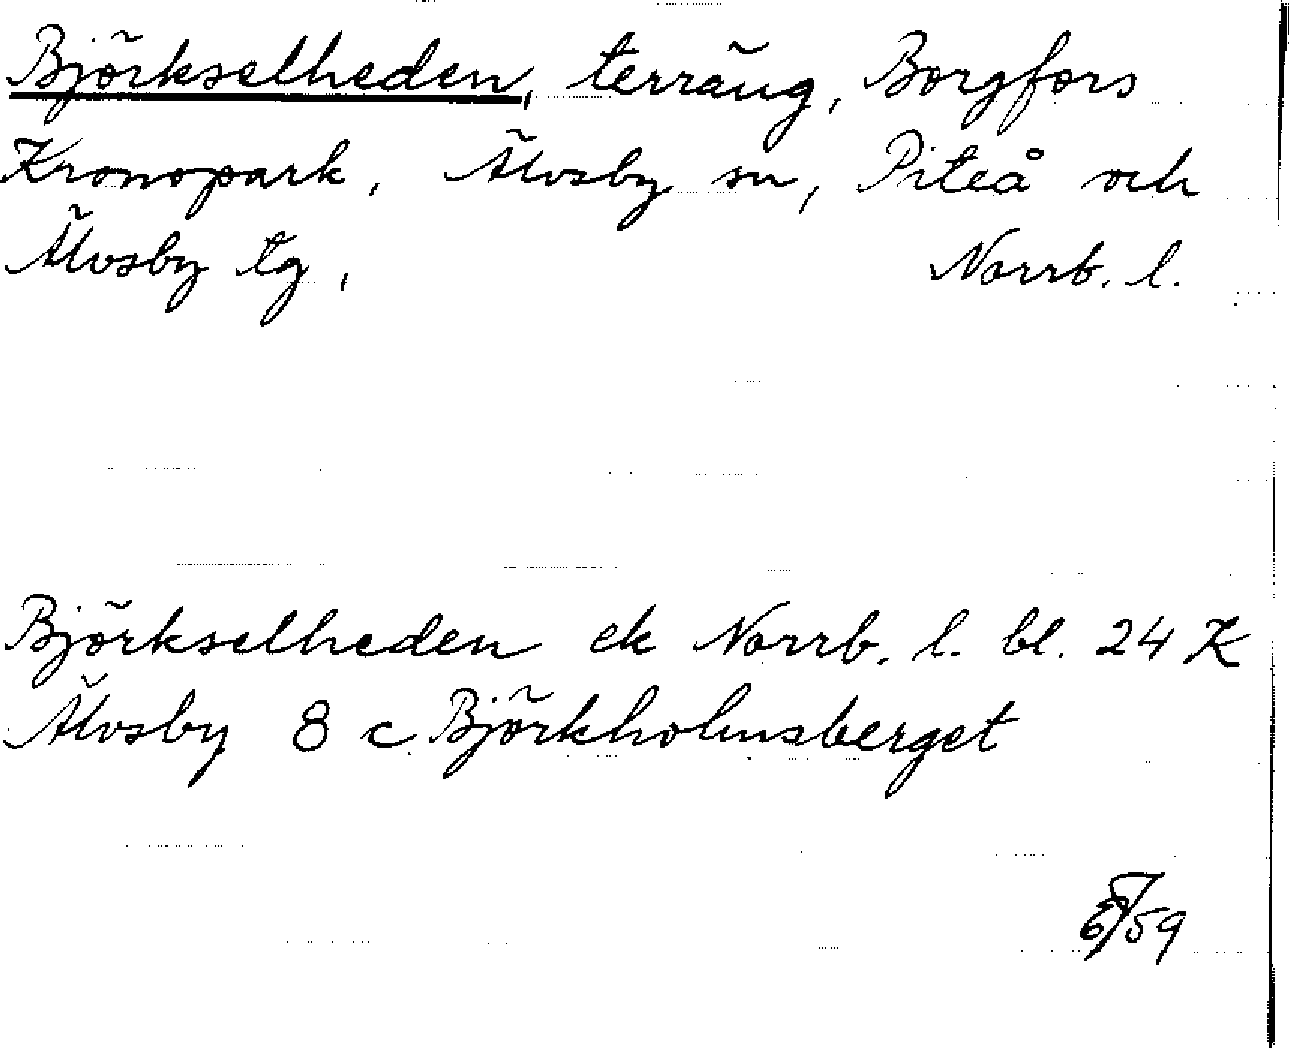 Björkselheden, terräng, Borgfors
Kronopark, Älvsby sn, Piteå och
Älvsby tg, Norrb. l.
Björkselheden ek Norrb. l. bl. 24 K
Älvsby 8 c Björkholmsberget
59